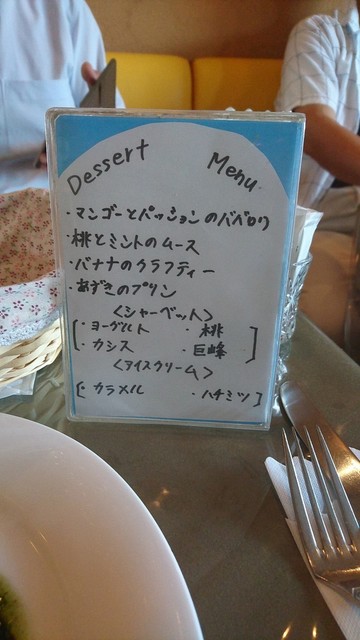 Dessert Menu
・マンゴーとパッションのババロワ
・桃とミントのムース
・バナナのクラフティー
・あずきのプリン
<シャーベット>
[・ヨーグルト ・桃
・カシス ・巨峰]
<アイスクリーム>
[・カラメル ・ハチミツ]